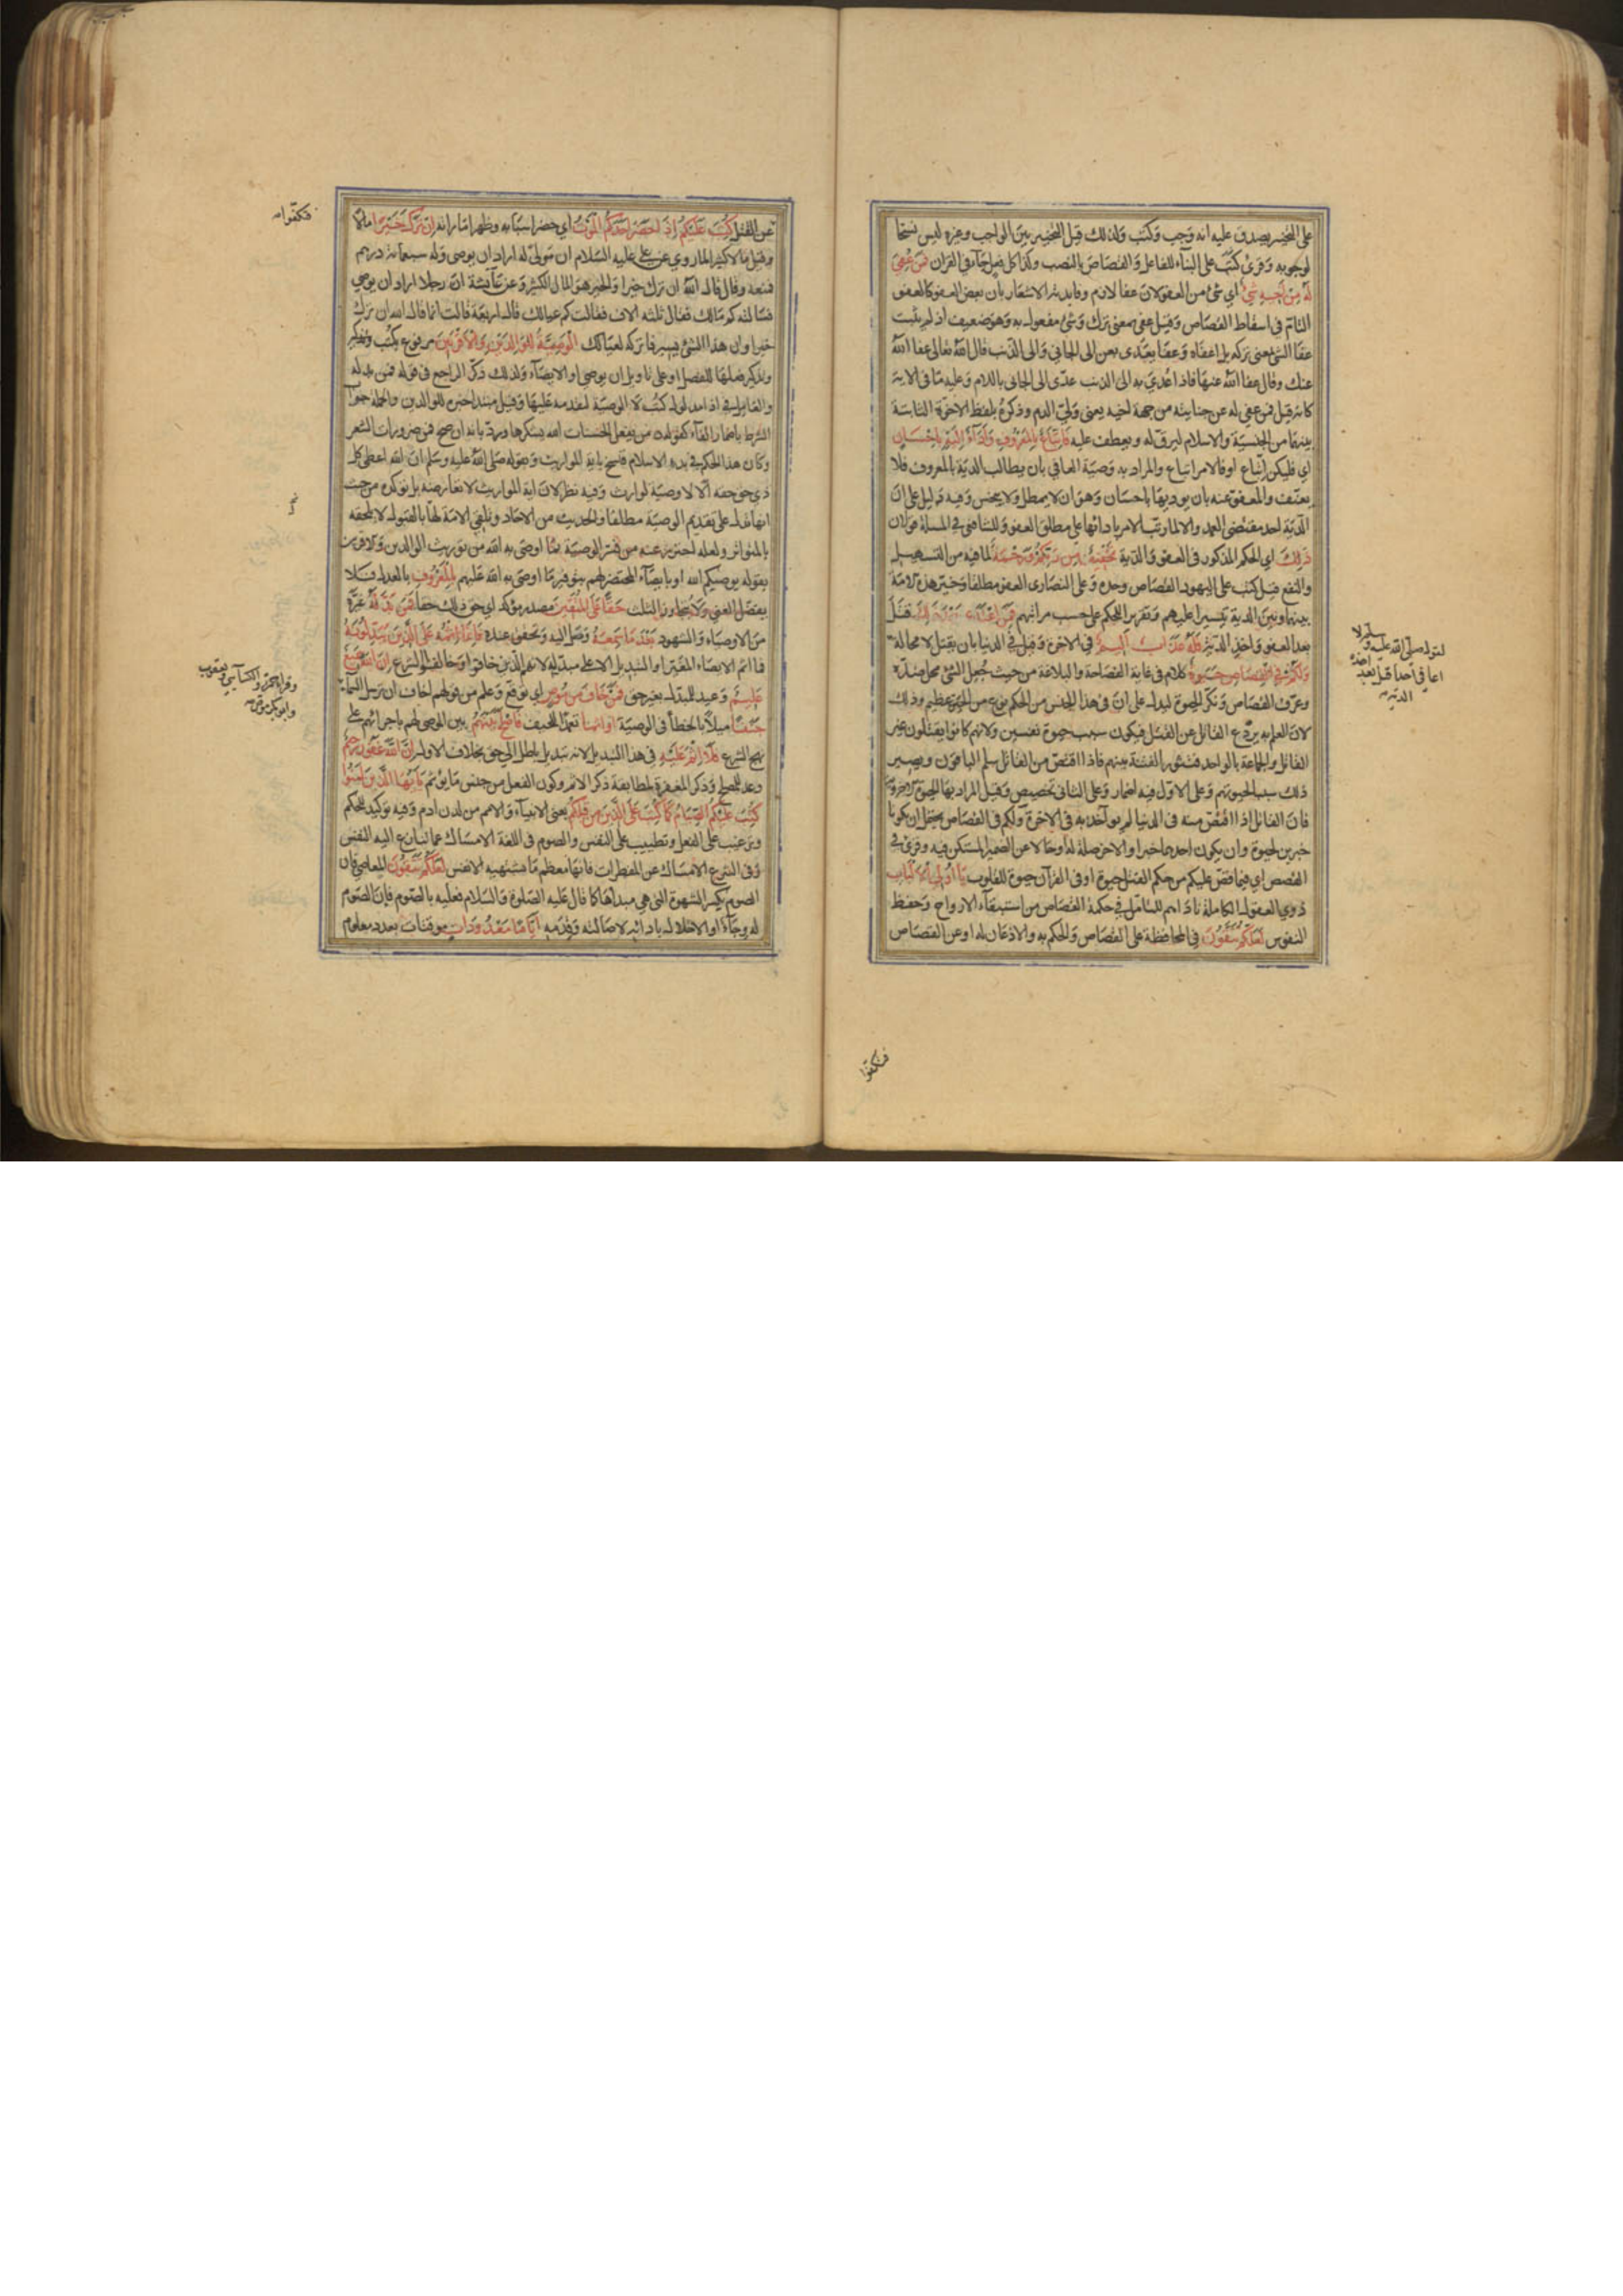 على التخيير يصدق عليه انه وجب وكتب ولذلك قيل التخيير بين الواجب وغيره ليس نسخا
لوجوبه وقرئ كتب على البناء للفاعل والقصاص بالنصب وكذا كل فعل جاء في القران فمن عفي
له من اخيه شئ اي شئ من العفو لان عفا لازم وفايدته الاشعار بان بعض العفو كالعفو
التام في اسقاط القصاص وقيل عفي بمعنى ترك وشئ مفعول به وهو ضعيف اذ لم يثبت
عفا الشئ بمعنى تركه بل اعفاه وعفا يعدى بعن الى الجاني والى الذنب قال الله تعالى عفا الله
عنك وقال عفا الله عنها فاذا عدي به الى الذنب عدى الى الجاني باللام وعليه ما في الاية
كانه قيل فمن عفي له عن جنايته من جهة اخيه يعني ولي الدم وذكره بلفظ الاخوة الثابتة
بينهما من الجنسية والاسلام ليرق له ويعطف عليه فاتباع بالمعروف واداء اليه باحسان
اي فليكن اتباع او فالامر اتباع والمراد به وصية العافي بان يطالب الدية بالمعروف فلا
يعنف والمعفو عنه بان يوديها باحسان وهو ان لا يمطل ولا يبخس وفيه دليل على ان
الدية احد مقتضى العمد والا لما رتب الامر بادائها على مطلق العفو وللشافعي في المسالة قولان
ذلك اي الحكم المذكور في العفو والدية تخفيف من ربكم ورحمة لما فيه من التسهيل
والنفع قيل كتب على اليهود القصاص وحده وعلى النصارى العفو مطلقا وخير هذه الامة
بينهما وبين الدية تيسيرا عليهم وتقريرا للحكم على حسب مراتبهم فمن اعتدى بعد ذلك قتل
بعد العفو واخذ الدية فله عذاب اليم في الاخرة وقيل في الدنيا بان يقتل لا محالة
ولكم في القصاص حيوة كلام في غاية الفصاحة والبلاغة من حيث جعل الشئ محل ضده
وعرف القصاص ونكر الحيوة ليدل على ان في هذا الجنس من الحكم نوع من الحيوة عظيم وذلك
لان العلم به يردع القاتل عن القتل فيكون سبب حيوة نفسين ولانهم كانوا يقتلون غير
القاتل والجماعة بالواحد فتثور الفتنة بينهم فاذا اقتص من القاتل سلم الباقون ويصير
ذلك سبب لحيوتهم وعلى الاول فيه اضمار وعلى الثاني تخصيص وقيل المراد بها الحيوة الاخروية
فان القاتل اذا اقتص منه في الدنيا لم يواخذ به في الاخرة ولكم في القصاص يحتمل ان يكونا
خبرين لحيوة وان يكون احدهما خبرا والاخر صلة له او حالا عن الضمير المستكن فيه وقرئ في
القصص اي فيما قص عليكم من حكم القتل حيوة او في القرآن حيوة للقلوب يا اولي الالباب
ذوي العقول الكاملة ناداهم للتامل في حكمة القصاص من استبقاء الارواح وحفظ
النفوس لعلكم تتقون في المحافظة على القصاص والحكم به والاذعان له او عن القصاص
لقوله صلى الله عليه وسلم لا
اعافي احدا قتل بعد اخذه
الدية
فتكفوا
عن القتل كتب عليكم اذا حضر احدكم الموت اي حضر اسبابه وظهر اماراته ان ترك خيرا مالا
وقيل مالا كثيرا لما روي عن علي عليه السلام ان مولى له اراد ان يوصى وله سبعمائة درهم
فمنعه وقال قال الله ان ترك خيرا والخير هو المال الكثير وعن عآيشة ان رجلا اراد ان يوصي
فسالته كم مالك فقال ثلثة الاف فقالت كم عيالك قال اربعة قالت انما قال الله ان ترك
خيرا وان هذا الشئ يسير فاتركه لعيالك الوصية للوالدين والاقربين مرفوع بكتب وتذكير
وتذكير فعلها للفصل او على تاويل ان يوصي او الايصآء ولذلك ذكر الراجع في قوله فمن بدله
والعامل في اذا مدلول كتب لا الوصية لتقدمه عليها وقيل مبتدا خبره للوالدين والجملة جواب
الشرط باضمار الفآء كقوله من يفعل الحسنات الله يشكرها ورد بانه ان صح فمن ضرورات الشعر
وكان هذا الحكم في بدء الاسلام فنسخ باية المواريث وبقوله صلى الله عليه وسلم ان الله اعطى كل
ذي حق حقه الا لا وصية لوارث وفيه نظر لان اية المواريث لا تعارضه بل توكده من حيث
انها تدل على تقديم الوصية مطلقا والحديث من الاحاد وتلقي الامة لها بالقبول لا يلحقه
بالمتواتر ولعله احترز عنه من فسر الوصية بما اوصى به الله من توريث الوالدين والاقربين
بقوله يوصيكم الله او بايصآء المحتضر لهم بتوفير ما اوصى به الله عليهم بالمعروف بالعدل فلا
يفضل الغني ولا يتجاوز الثلث حقا على المتقين مصدر موكد اي حق ذلك حقا فمن بدله غيره
من الاوصياء والشهود بعد ما سمعه وصل اليه وتحقق عنده فانما اثمه على الذين يبدلونه
فما اثم الايصاء المغير او التبديل الا على مبدليه لانهم الذين خانوا وخالفوا الشرع ان الله سميع
عليم وعيد للمبدل بغير حق فمن خاف من موص اي توقع وعلم من قولهم اخاف ان ترسل السماء
جنفا ميلا بالخطأ في الوصية او اثما تعمدا للحيف فاصلح بينهم بين الموصى لهم باجرائهم على
نهج الشرع فلا اثم عليه في هذا التبديل لانه تبديل باطل الى حق بخلاف الاول ان الله غفور رحيم
وعد للمصلح وذكر المغفرة لمطابقة ذكر الاثم وكون الفعل من جنس ما يوثم يا ايها الذين امنوا
كتب عليكم الصيام كما كتب على الذين من قبلكم يعني الانبيآء والامم من لدن ادم وفيه توكيد للحكم
وترغيب على الفعل وتطييب على النفس والصوم في اللغة الامساك عما تنازع اليه النفس
وفي الشرع الامساك عن المفطرات فانها معظم ما تشتهيه الانفس لعلكم تتقون المعاصي فان
الصوم يكسر الشهوة التي هي مبداها كما قال عليه الصلوة والسلام فعليه بالصوم فان الصوم
له وجآء او الاخلال بادائه لاصالته وقدمه اياما معدودات موقتات بعدد معلوم
فتكفوا
وقرا حمزة والكسآيي ويعقوب
وابو بكر موص